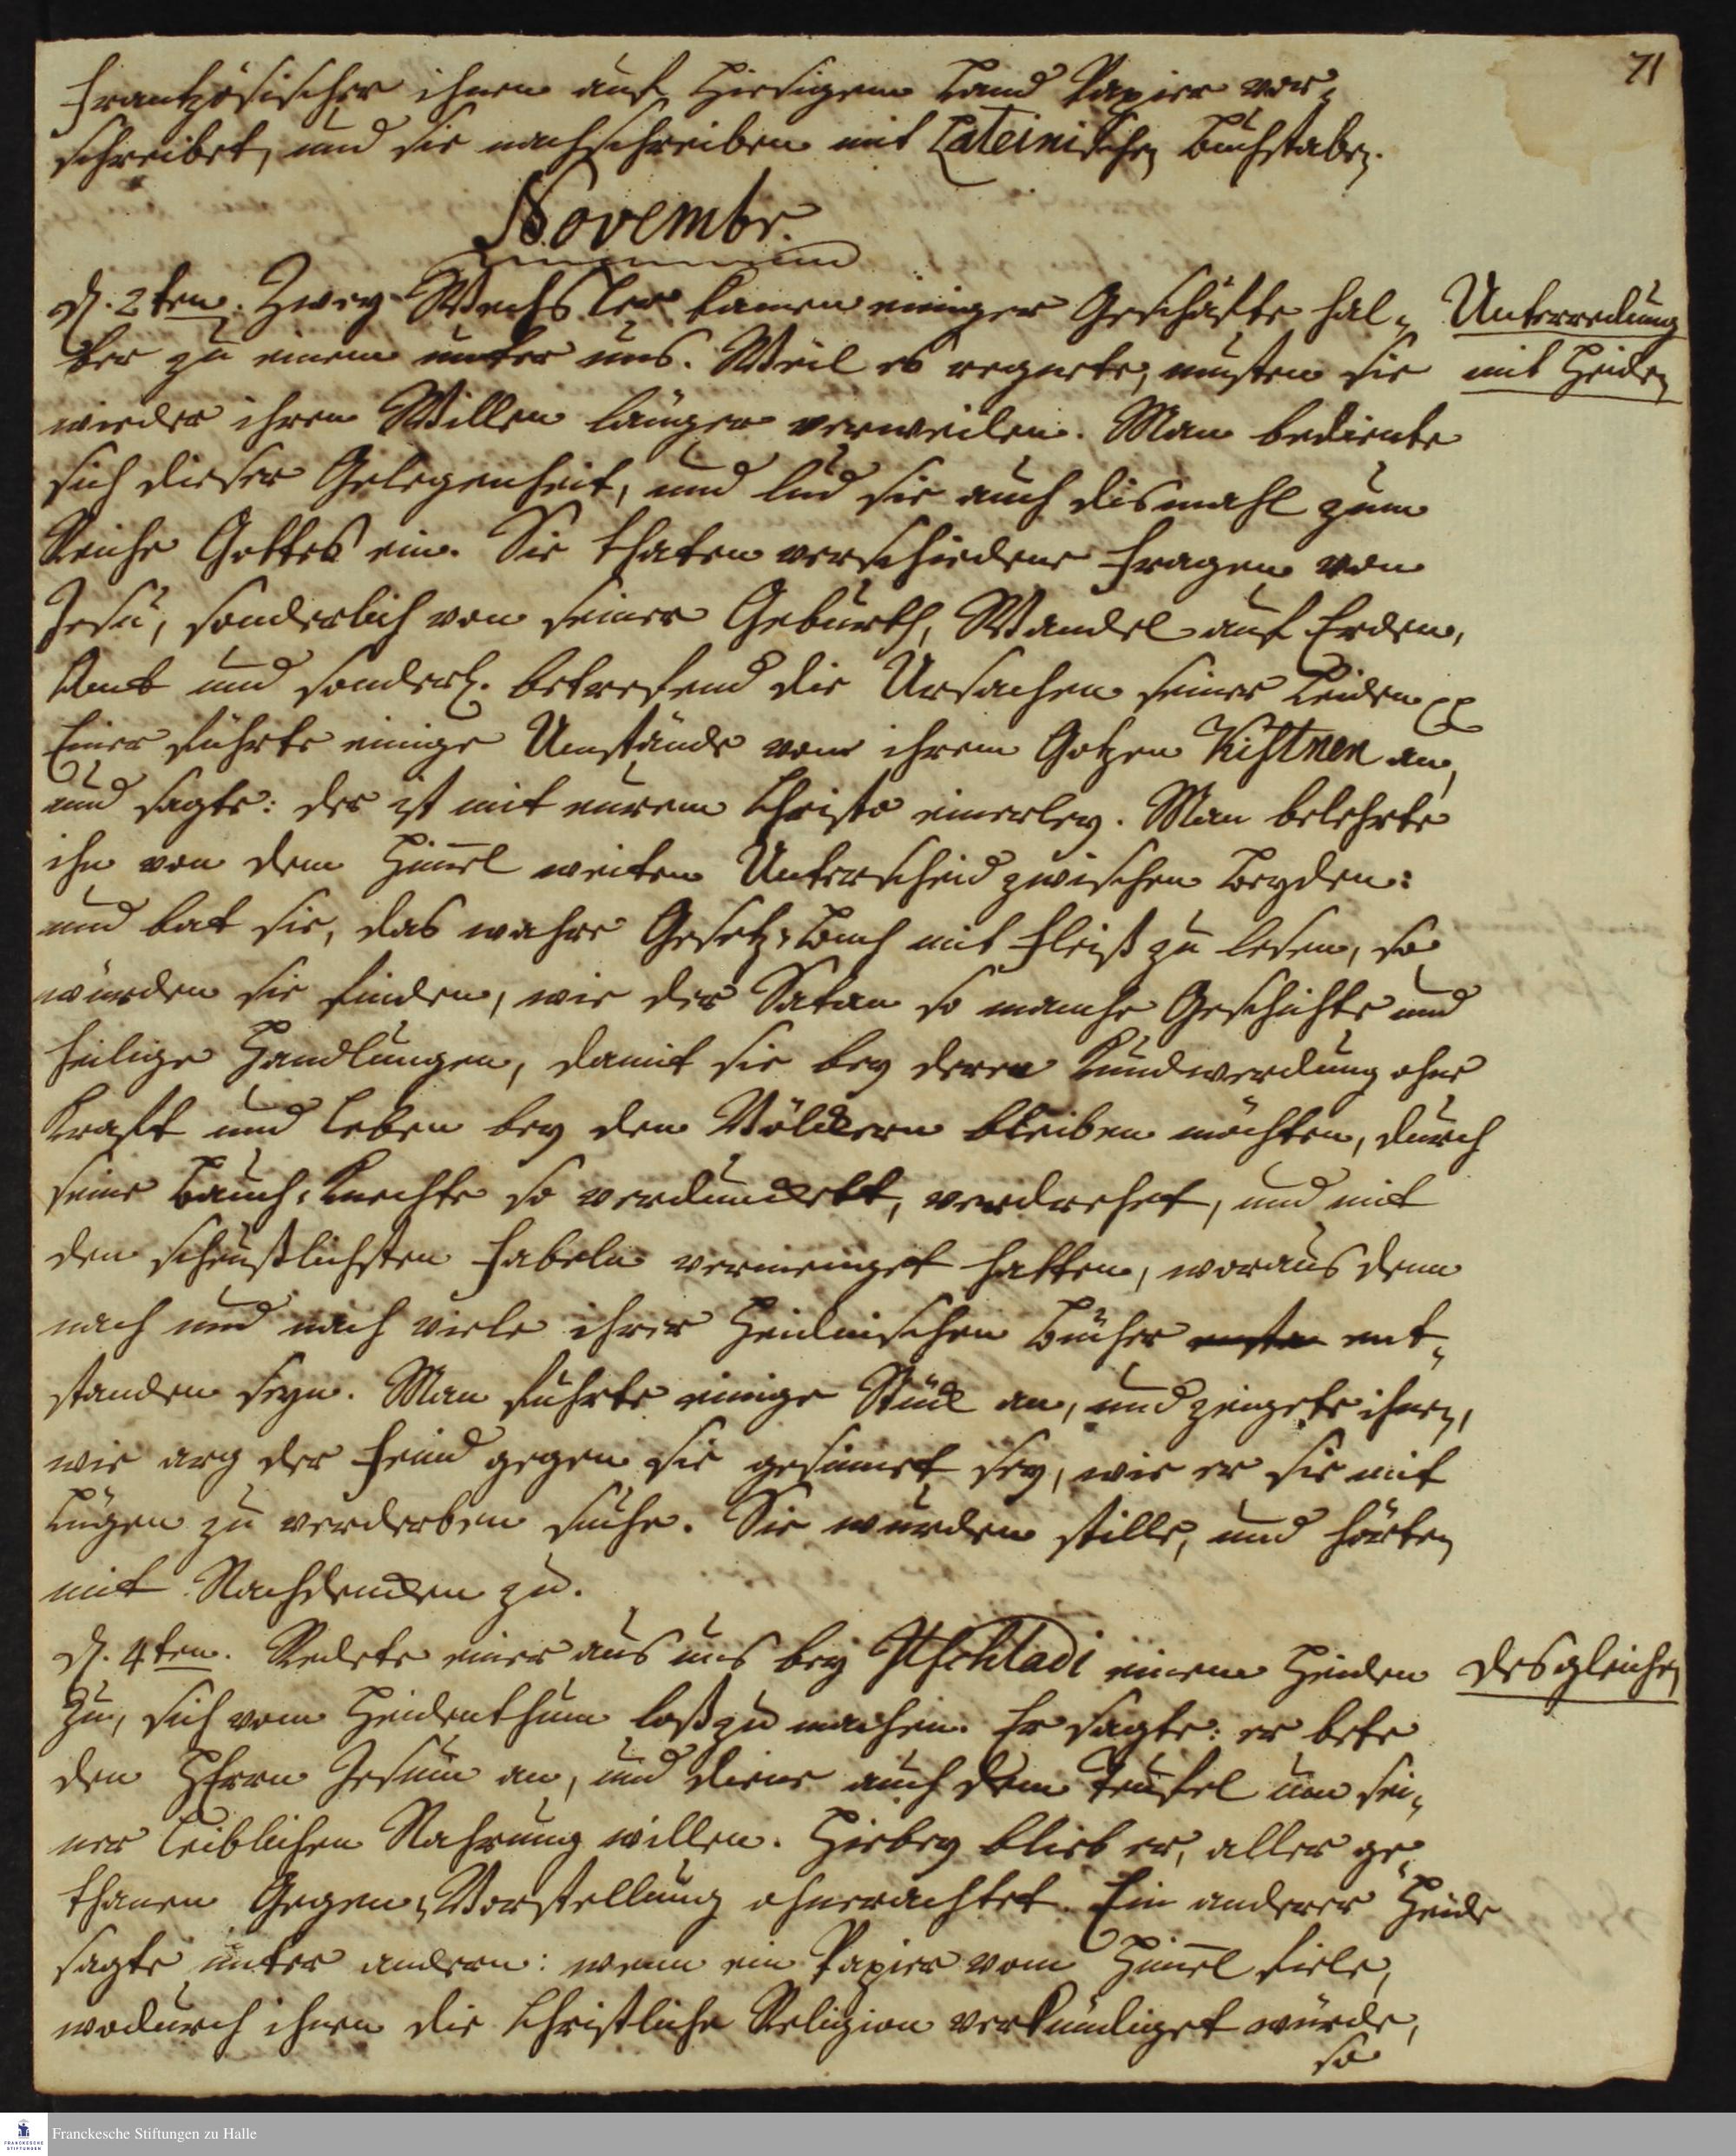 71
Frantzösischer ihnen auf hiesigem Land Papier vor-
schreibet, und sie nachschreiben mit Lateinischen Buchstaben.
Novembr.
d. 2ten. Zwey Wechsler kamen einiger Geschäfte hal-
Unterredung
ber zu einem unter uns. Weil es regnete, musten sie
mit Heiden
wieder ihren Willen länger verweilen. Man bediente
sich dieser Gelegenheit, und lud sie auch dismahl zum
Reiche Gottes ein. Sie thaten verschiedene Fragen von
Jesu, sonderlich von seiner Geburth, Wandel auf Erden,
Amt und sonderl. betrefend die Ursachen seiner Leiden
Einer führte einige Umstände von ihrem Gotzen Kistnen an,
und sagte: der ist mit eurem Christo einerley. Man belehrte
ihn von dem Him̅el weiten Unterscheid zwischen beyden:
und bat sie, das wahre Gesetz-Buch mit Fleiß zu lesen, so
würden sie finden, wie der Satan so manche Geschichte und
heilige Handlungen, damit sie bey deren Kundwerdung ohne
Kraft und Leben bey den Völckern bleiben möchten, durch
seine Bauch-Knechte so verdunckelt, verdrehet, und mit
den scheußlichsten Fabeln vermenget hatten, woraus denn
nach und nach viele ihrer Heidnischen Bücher ent-
standen seyn. Man führte einige Stück an, und zeigete ihnen,
wie arg der Feind gegen sie gesinnet sey, wie er sie mit
Lügen zu verderben suche. Sie wurden stille, und hörten
mit Nachdencken zu.
d. 4ten. Redete einer aus uns bey Itschladi einem Heiden
desgleichen
zu, sich vom Heidenthum loßzumachen. Er sagte: er bete
den HErrn Jesum an, und diene auch dem Teufel um sei-
ner leiblichen Nahrung willen. Hiebey blieb er, aller ge-
thanen Gegen-Vorstellung ohnerachtet. Ein anderer Heide
sagte unter andern: wenn ein Papier vom Him̅el fiele,
wodurch ihnen die Christliche Religion verkündiget würde,
so
FRANCKESCHE
STIFTUNGEN
Franckesche Stiftungen zu Halle